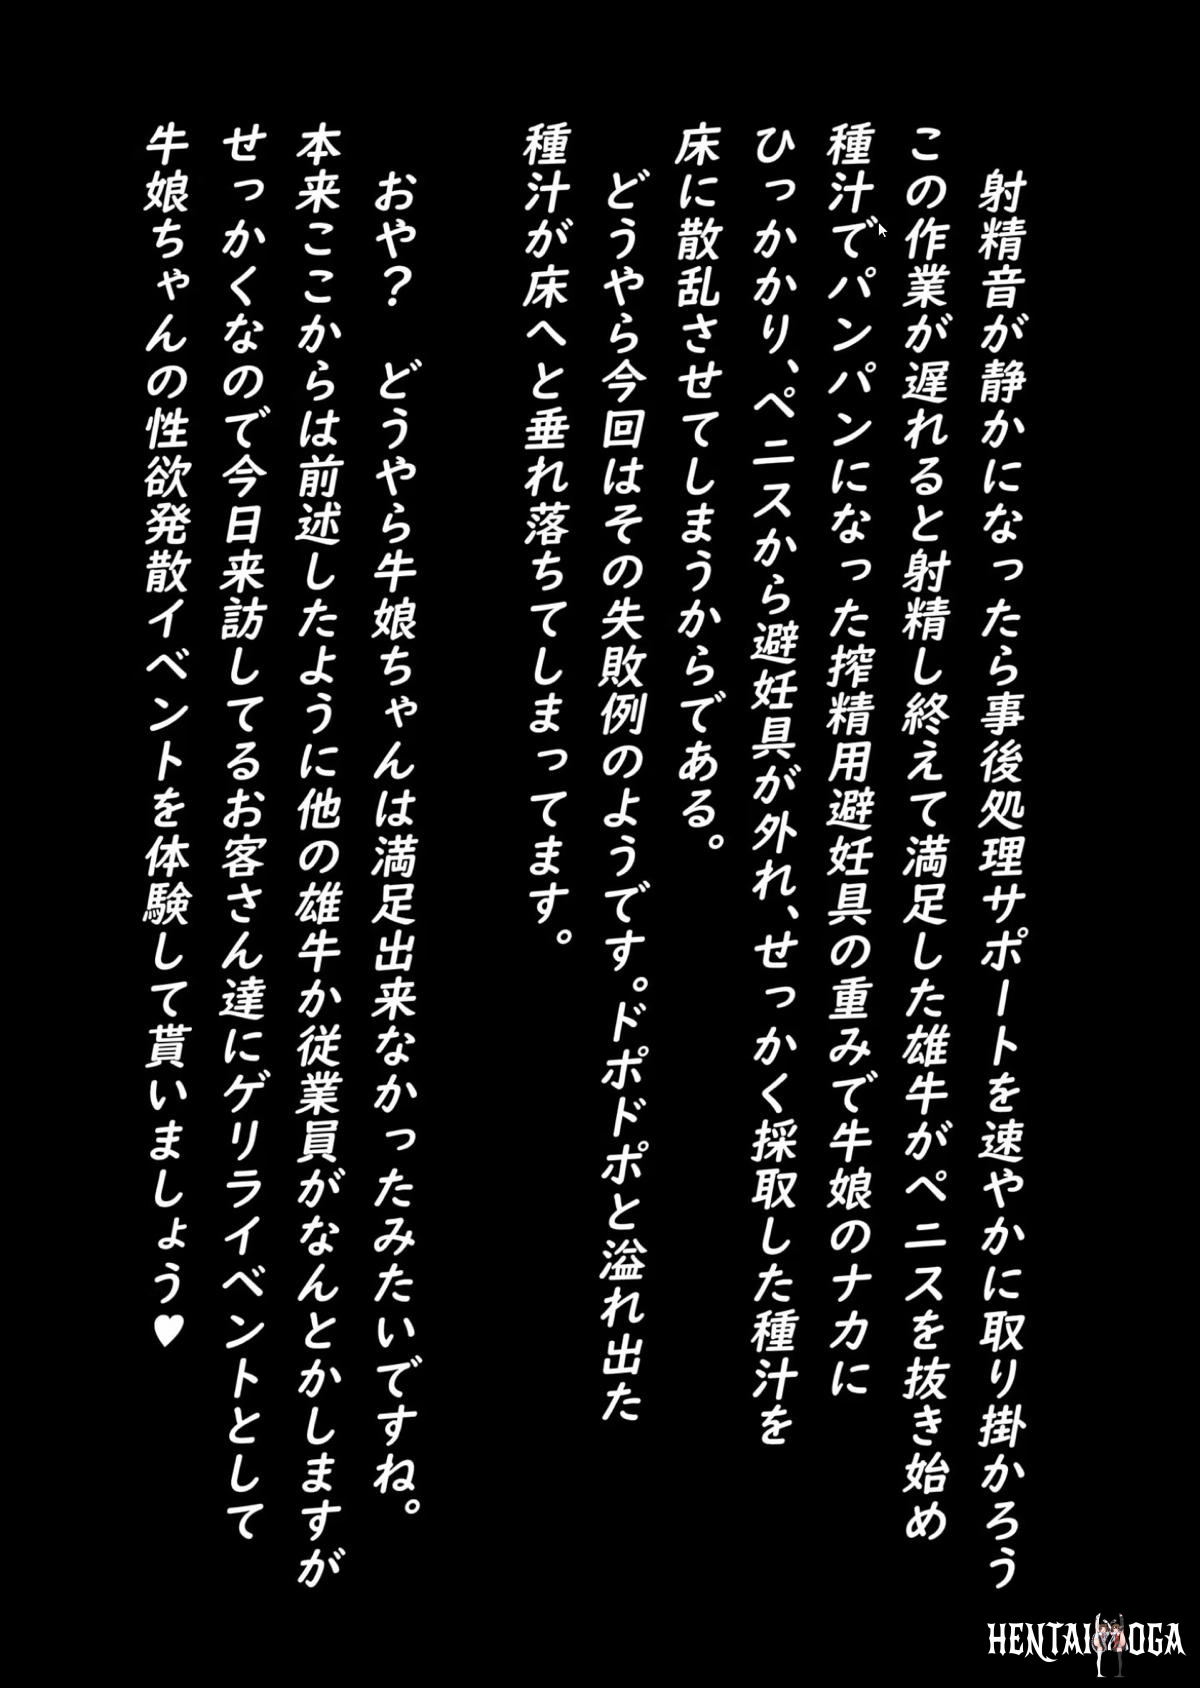 射精音が静かになったら事後処理サポートを速やかに取り掛かろう
この作業が遅れると射精し終えて満足した雄牛がペニスを抜き始め
種汁でパンパンになった搾精用避妊具の重みで牛娘のナカに
ひっかかり、ペニスから避妊具が外れ、せっかく採取した種汁を
床に散乱させてしまうからである。
どうやら今回はその失敗例のようです。ドポドポと溢れ出た
種汁が床へと垂れ落ちてしまってます。
おや？ どうやら牛娘ちゃんは満足出来なかったみたいですね。
本来ここからは前述したように他の雄牛か従業員がなんとかしますが
せっかくなので今日来訪してるお客さん達にゲリライベントとして
牛娘ちゃんの性欲発散イベントを体験して貰いましょう♥
HENTAI OGA